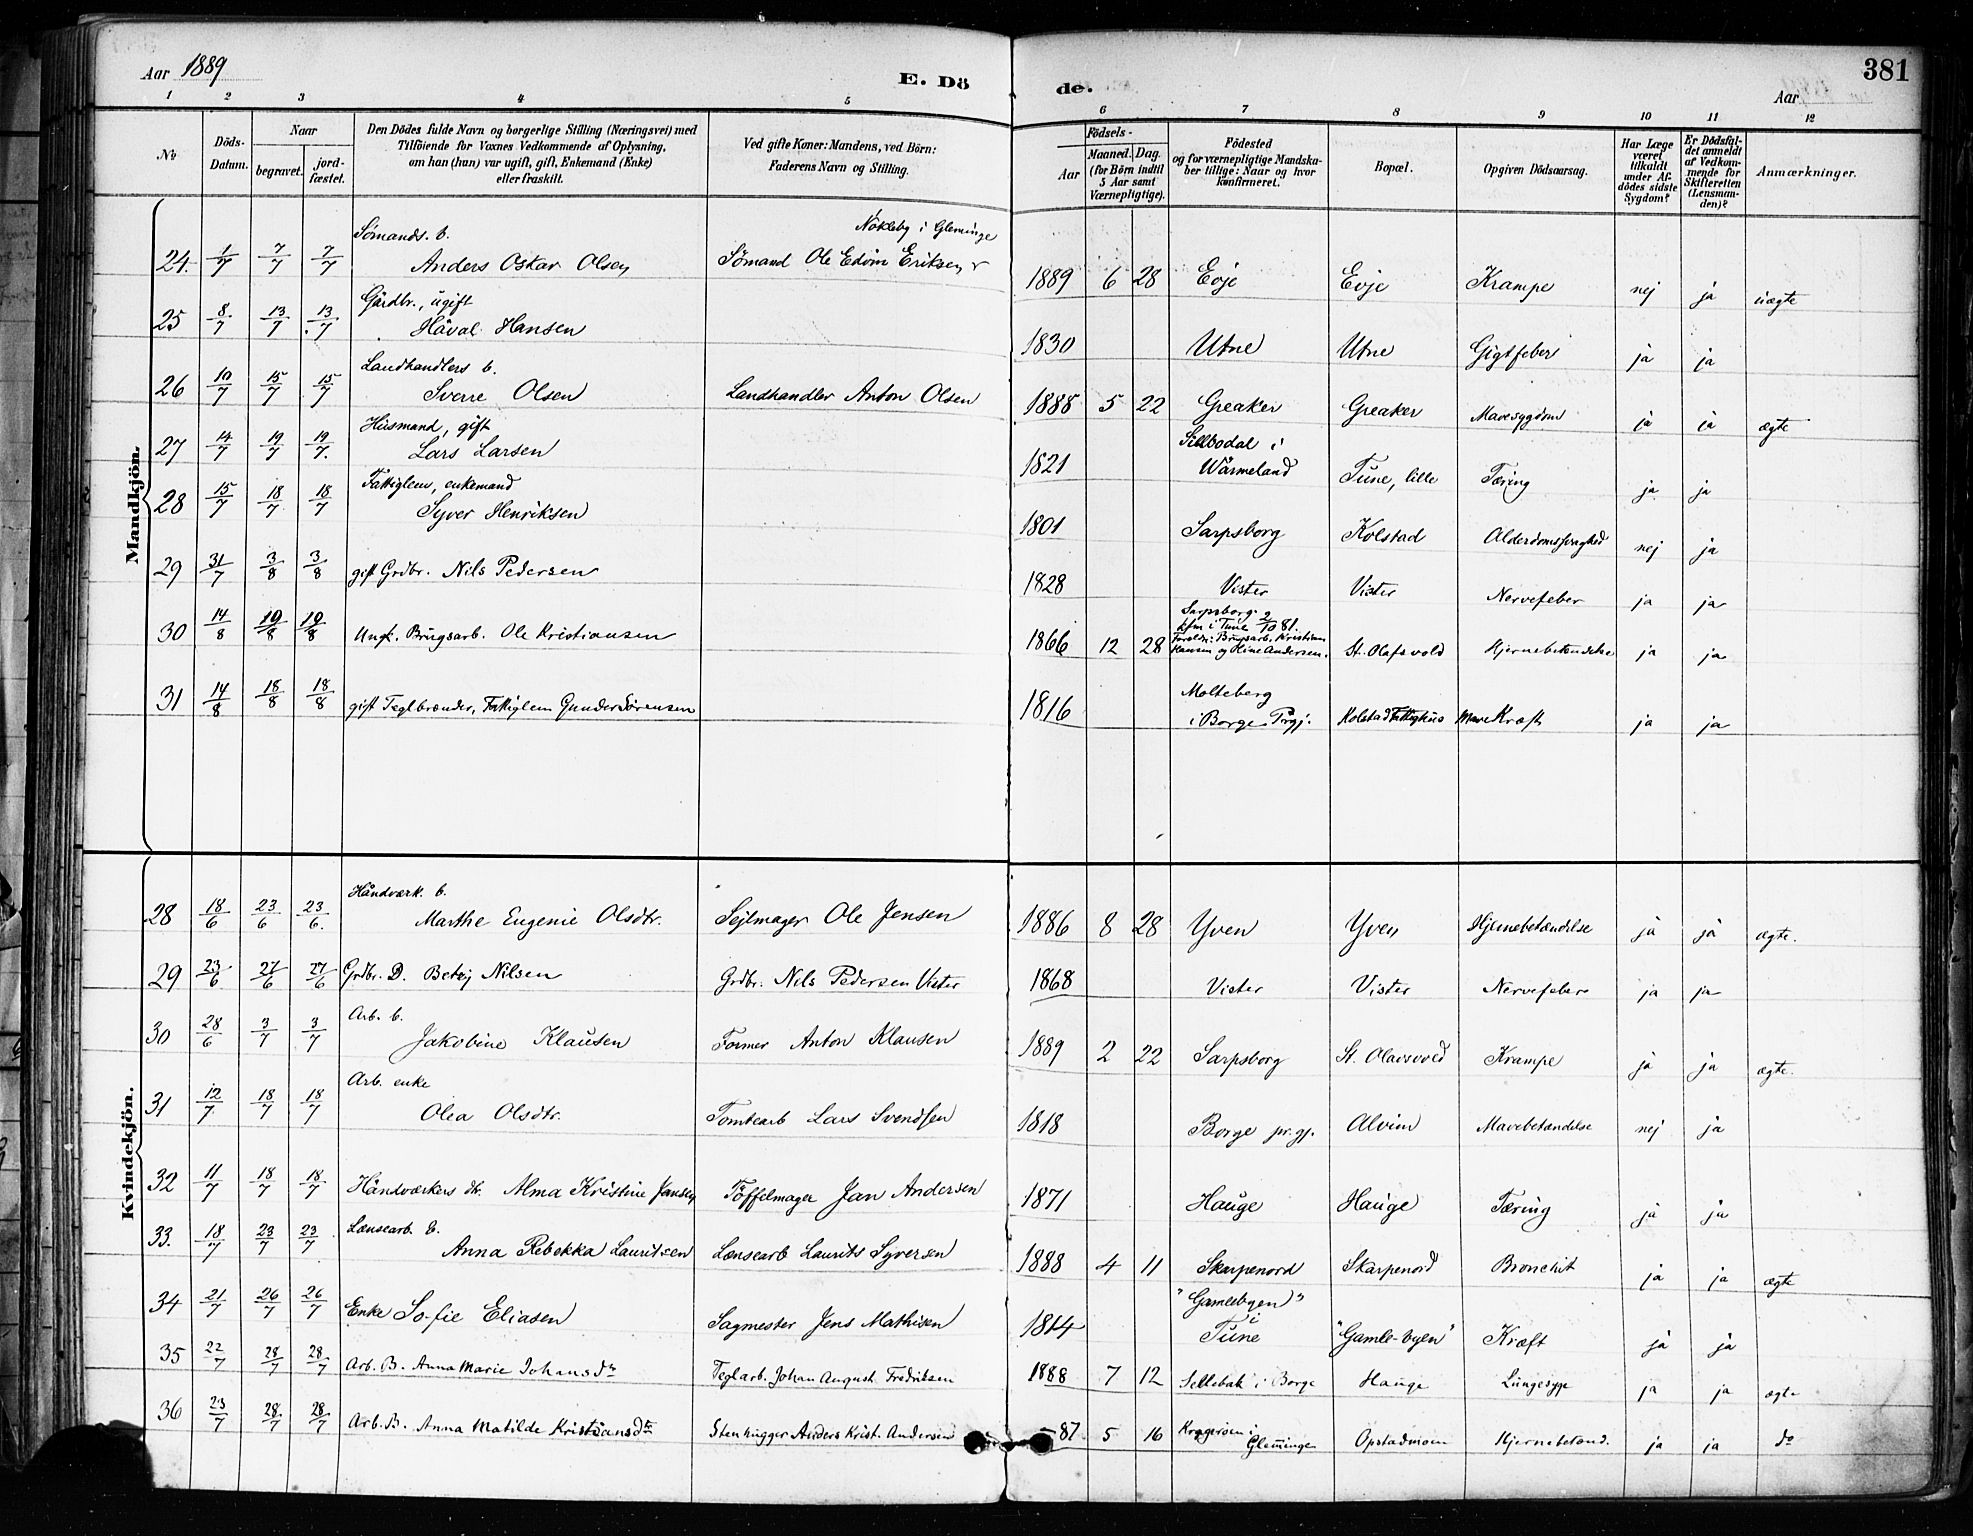 Aar 1889
E. Dö
de.
Aar
381
1 2 3 4 5 6 7 8 9 10 11 12
No
Döds-Datum.
Naar
begravet.
jord-fæstet.
Den Dödes fulde Navn og borgerlige Stilling (Næringsvei) med
Tilföiende for Voxnes Vedkommende af Oplysning,
om han (hun) var ugift, gift, Enkemand (Enke)
eller fraskilt.
Ved gifte Koner: Mandens, ved Börn:
Faderens Navn og Stilling.
Födsels-
Aar
Maaned. Dag.
(for Börn indtil
5 Aar samt
Værnepligtige).
Födested
og for værnepligtige Mandska-
ber tillige: Naar og hvor
konfirmeret.
Bopæl.
Opgiven Dödsaarsag.
Har Læge
været
tilkaldt
under Af-
dödes sidste
Sygdom?
Er Dödsfal-
det anmeldt
af Vedkom-
mende for
Skifteretten
(Lensman-
den)?
Anmærkninger.
Mandkjön.
Sømands. b. Nökleby i Gleminge
24. 1/7 7/7 7/7 Anders Oskar Olsen Sømand Ole Edvin Eriksen 1889 6 28 Evje Evje Krampe nej ja uægte
Gårdbr., ugift
25 8/7 13/7 13/7 Håval Hansen 1830 Utne Utne Gigtfeber ja ja
Landhandlers b.
26 10/7 15/7 15/7 Sverre Olsen Landhandler Anton Olsen 1888 5 22 Greaker Greaker Mavesygdom ja ja ægte
Husmand, gift Sillbodal i
27 14/7 19/7 19/7. Lars Larsen 1821 Wärmeland Tune, lille Tæring ja ja
Fattiglem, enkemand
28 15/7 18/7 18/7 Syver Henriksen 1801 Sarpsborg Kolstad Alderdomssvaghed nej ja
29 31/7 3/8 3/8 gift Grdbr. Nils Pedersen 1828 Vister Vister Nervefeber ja ja
Sarpsborg.
kfm i Tune 2/10 81.
30 14/8 19/8 19/8 Ungk. Brugsarb. Ole Kristiansen 1866 12 28 Foreldr: Brugsarb. Kristian
Hansen og Oline Andersen. St. Olafsvold Hjernebetændelse ja ja
Molteberg
31 14/8 18/8 18/8 gift Teglbrænder, Fattiglem Gunder Sörensen 1816 i Borge Prgj. Kolstad Fattighus Mavekræft ja ja
Kvindekjön.
Håndværk. b.
28 18/6 23/6 23/6. Marthe Eugenie Olsdtr. Sejlmager Ole Jensen 1886 8 28 Yven Yven Hjernebetændelse ja ja ægte.
29 23/6 27/6 27/6 Grdbr. D. Betzy Nilsen Grdbr. Nils Pedersen Vister 1868 Vister Vister Nervefeber ja ja
Arb. b.
30 28/6 3/7 3/7 Jakobine Klausen Former Anton Klausen 1889 2 22 Sarpsborg St. Olavsvold Krampe ja ja ægte.
Arb. enke
31 12/7 18/7 18/7 Olea Olsdtr. Tomtearb Lars Svendsen 1818 Borge pr.gj. Alvim Mavebetændelse nej ja
32 11/7 18/7 18/7 Håndværkers dtr. Alma Kristine Jansen Töffelmager Jan Andersen 1871 Hauge Hauge Tæring ja ja
Lænsearb. b.
33. 18/7 23/7 23/7 Anna Rebekka Lauritsen Lænsearb Laurits Syversen 1888 4 11 Skarpenord Skarpenord Bronchit ja ja ægte
"Gamlebyen" i
34 21/7 26/7 26/7 Enke Sofie Eliasen Sagmester Jens Mathisen 1814 Tune "Gamle-byen" Kræft ja ja
35 22/7 28/7 28/7 Arb. B. Anna Marie Johansdtr Teglarb. Johan August Fredriksen 1888 7 12 Sellebak i Borge Hauge Lungesyge ja ja ægte
36 23/7 28/7 28/7 Arb. B. Anna Matilde Kristiansdtr Stenhugger Anders Krist. Andersen -87 5 16 Kragerøen i
Glemminge Opstadmoen Hjernebetænd. ja ja do